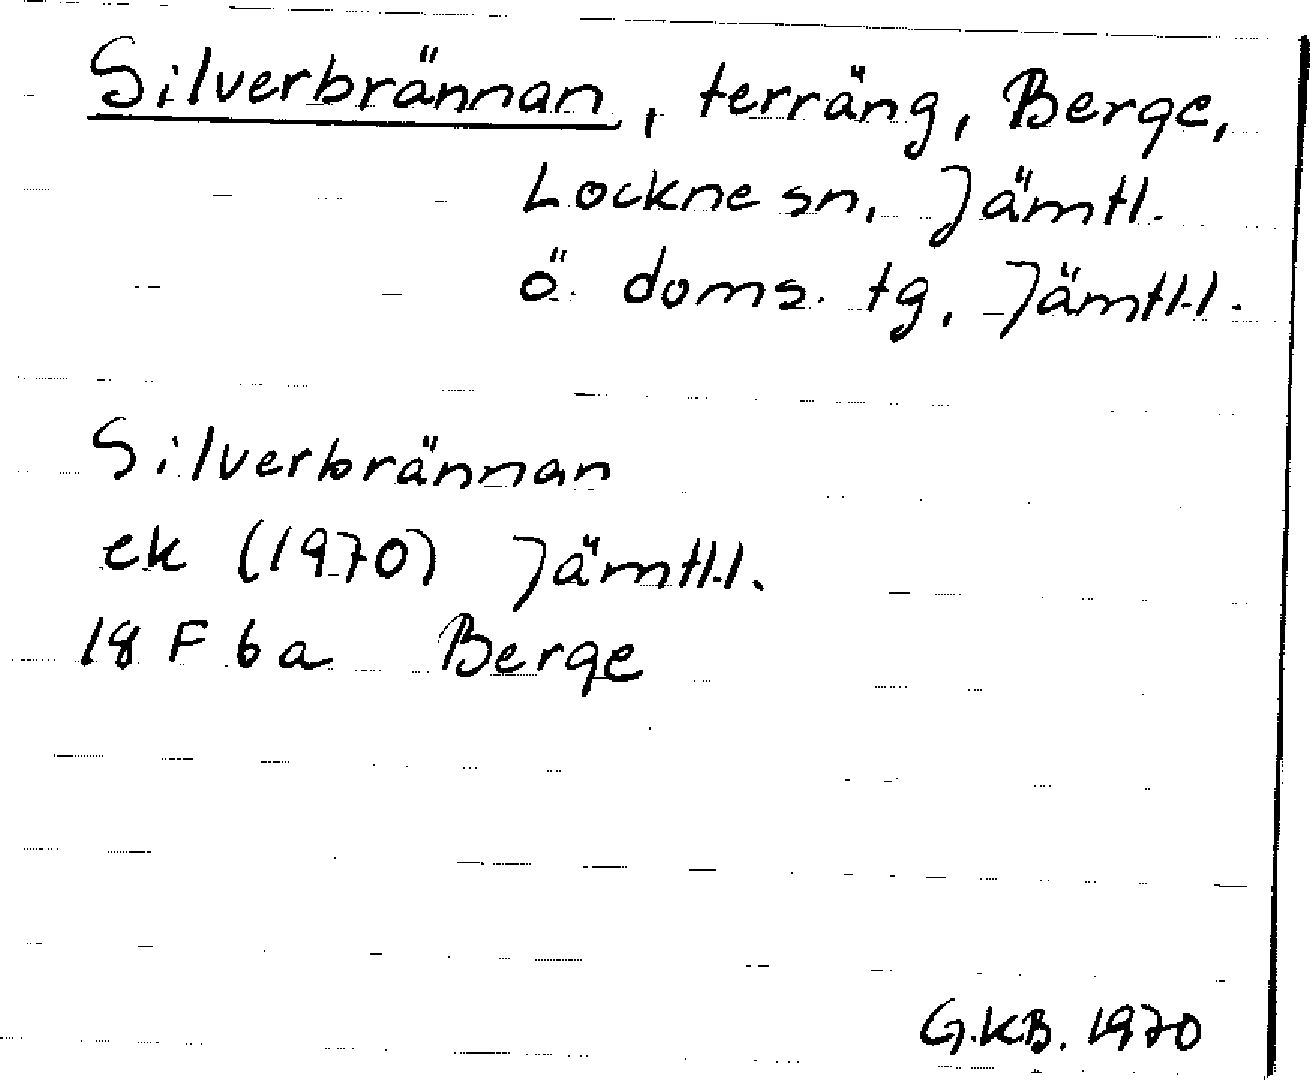 Silverbrännan, terräng, Berge,
Lockne sn, Jämtl.
Ö. doms. tg, Jämtl.l.
Silverbrännan
ek (1970) Jämtl.l.
18 F 6 a Berge
G.KB. 1970